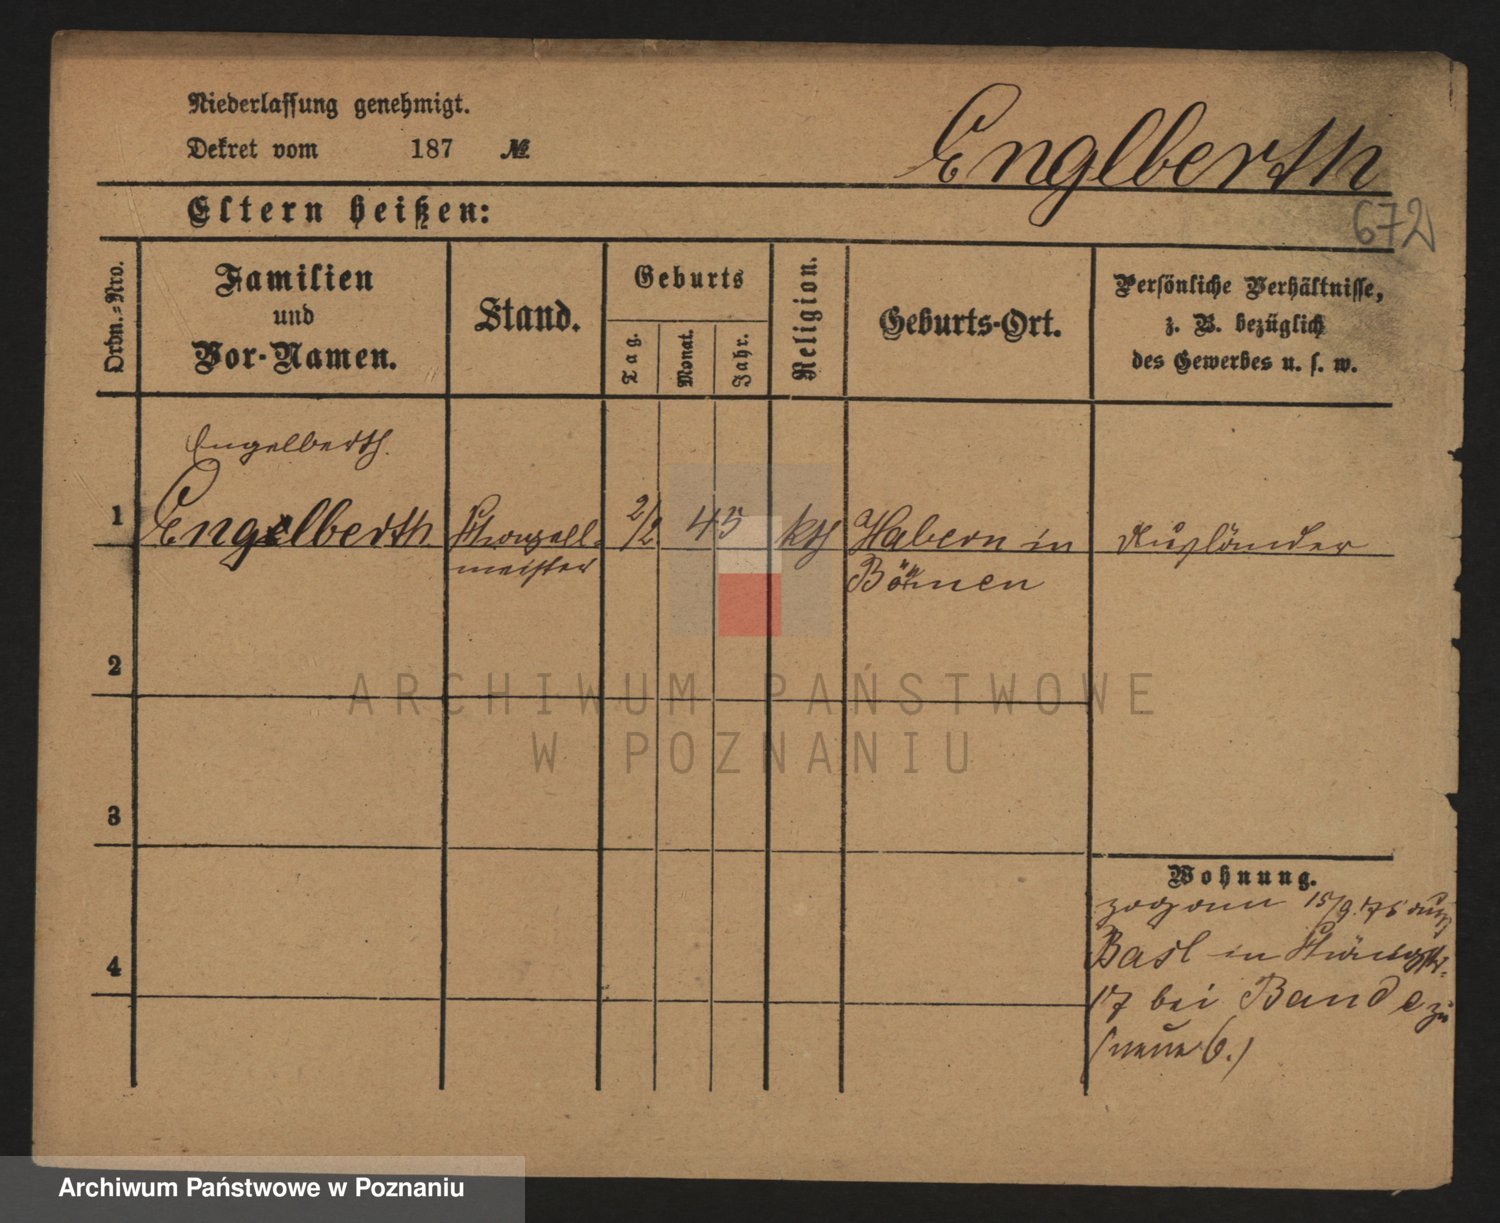 Niederlassung genehmigt.
Dekret vom 187 №
Englberth
672
Eltern heißen:
Ordn.-Nro.
Familien
und
Vor-Namen.
Stand.
Geburts
Tag.
Monat.
Jahr.
Religion.
Geburts-Ort.
Persönliche Verhältnisse,
z. B. bezüglich
des Gewerbes u. s. w.
Engelberth.
1 Engelberth 2/2 45 kth Habern in Ausländer
meister Böhmen
2
ARCHIWUM PAŃSTWOWE
W POZNANIU
3
Wohnung.
15/9.75 aus
4 Basl in
17 bei Bande zu
(neue 6.)
Archiwum Państwowe w Poznaniu